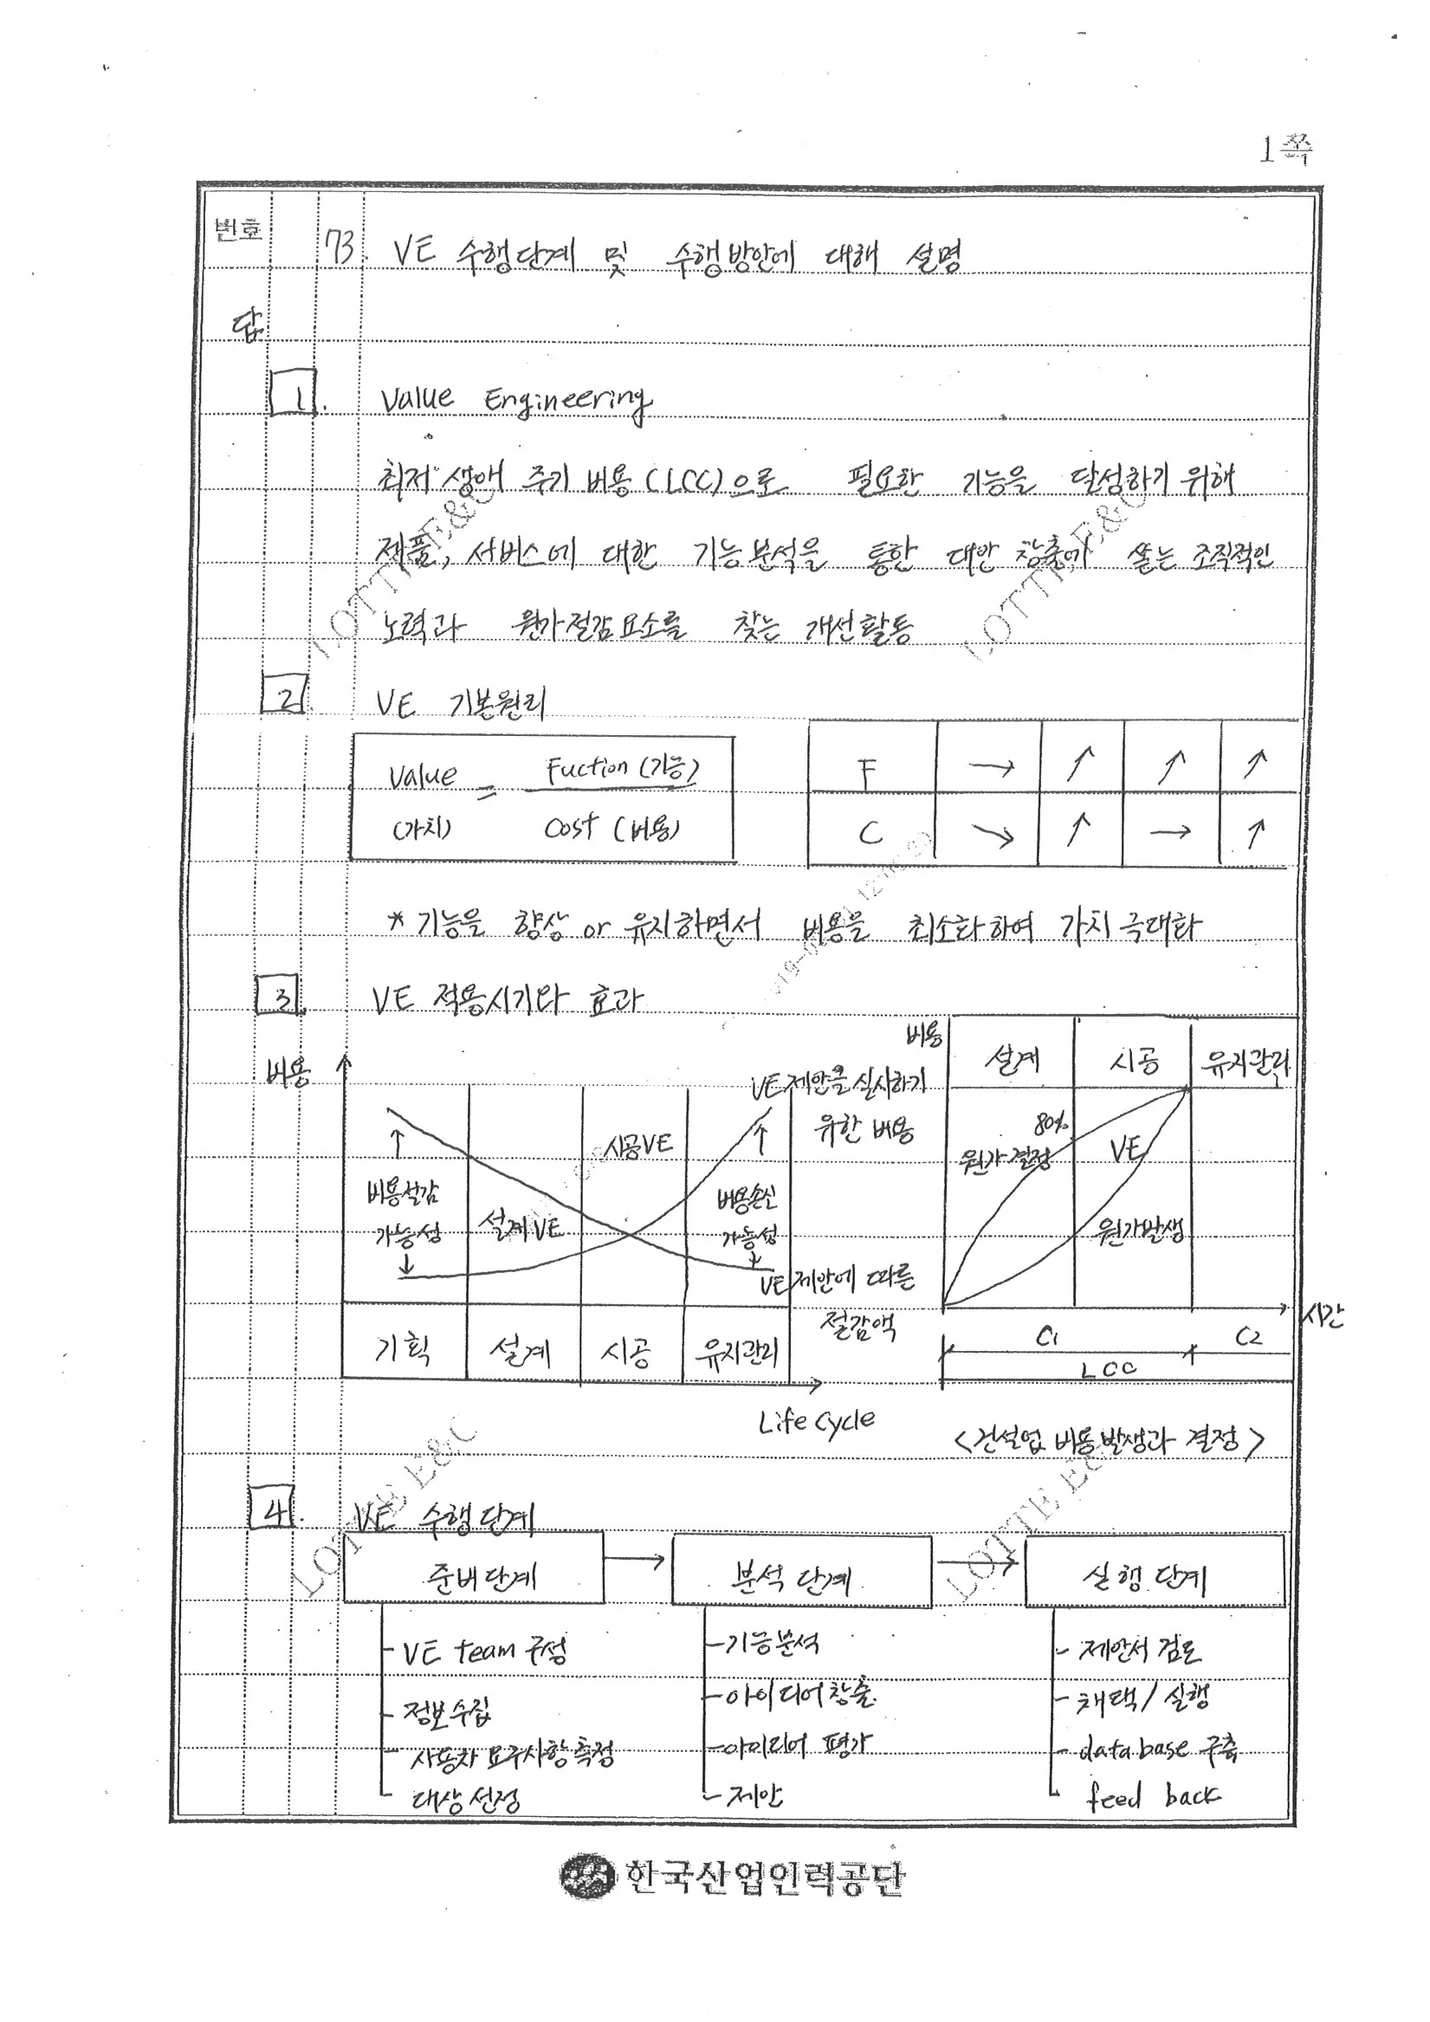 1쪽
번호 73. VE 수행단계 및 수행방안에 대해 설명
답
1. Value Engineering
최저 생애 주기 비용(LCC)으로 필요한 기능을 달성하기 위해
제품, 서비스에 대한 기능분석을 통한 대안 창출가 쏟는 조직적인
노력과 원가절감요소를 찾는 개선활동
2. VE 기본원리
Value (가치) = Fuction (기능) / Cost (비용)
F → ↑ ↑ ↑
C ↘ ↑ → ↑
* 기능을 향상 or 유지하면서 비용을 최소화하여 가치 극대화
3. VE 적용시기와 효과
비용
VE 제안을 실시하기
유한 비용
시공VE
비용절감
가능성
설계VE
비용손실
가능성
VE 제안에 따른
절감액
기획 설계 시공 유지관리
Life cycle
비용
설계 시공 유지관리
80%
원가결정
VE
원가발생
시간
C1 C2
LCC
<건설업 비용발생과 결정>
4. VE 수행단계
준비단계 → 분석단계 → 실행단계
VE team 구성
정보수집
사용자 요구사항 측정
대상선정
기능분석
아이디어창출
아이디어 평가
제안
제안서 검토
채택/실행
data base 구축
feed back
LOTTE E&C
LOTTE E&C
LOTTE E&C
LOTTE E&C
한국산업인력공단